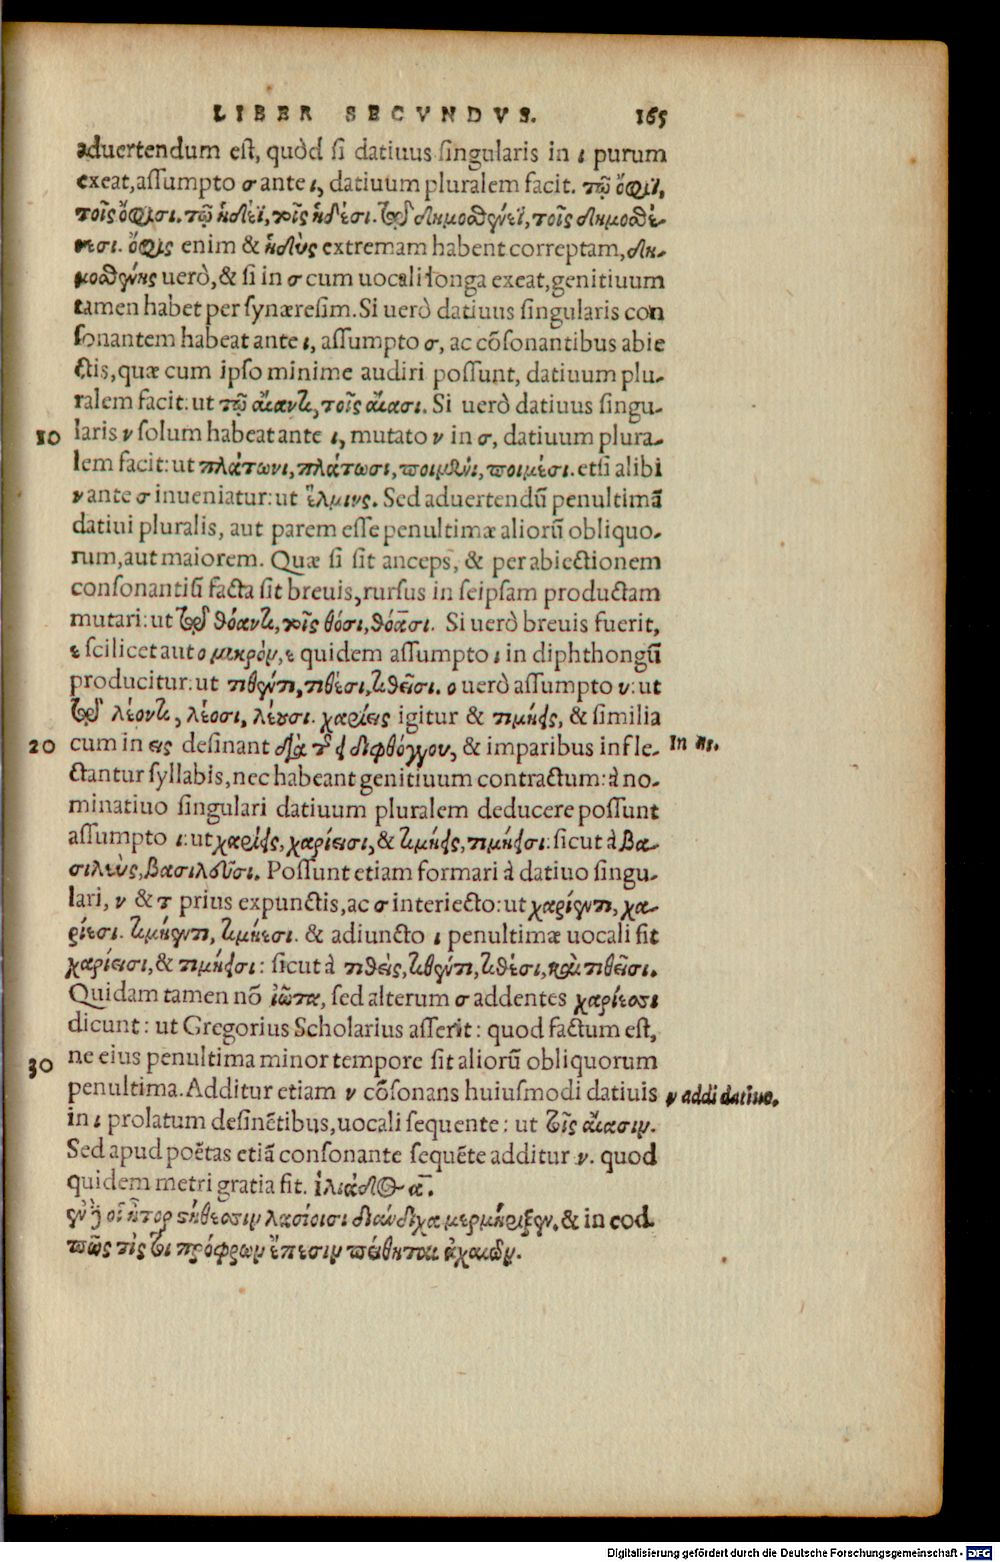 LIBER SECVNDVS. 165
aduertendum est, quòd si datiuus singularis in ι purum
exeat, assumpto σ ante ι, datiuum pluralem facit. τῷ ὄφιϊ,
τοῖς ὄφισι. τῷ ἡδέϊ, τοῖς ἡδέσι. τῷ δημοσθένεϊ, τοῖς δημοσθέ-
νεσι. ὄφις enim & ἡδὺς extremam habent correptam, δη-
μοσθένης uerò, & si in σ cum uocali longa exeat, genitiuum
tamen habet per synæresim. Si uerò datiuus singularis con
sonantem habeat ante ι, assumpto σ, ac cõsonantibus abie
ctis, quæ cum ipso minime audiri possunt, datiuum plu-
ralem facit: ut τῷ αἴαντι, τοῖς αἴασι. Si uerò datiuus singu-
10 laris ν solum habeat ante ι, mutato ν in σ, datiuum plura-
lem facit: ut πλάτωνι, πλάτωσι, ποιμένι, ποιμέσι. etsi alibi
ν ante σ inueniatur: ut ἕλμινς. Sed aduertendũ penultimã
datiui pluralis, aut parem esse penultimæ aliorũ obliquo-
rum, aut maiorem. Quæ si sit anceps, & per abiectionem
consonantiũ facta sit breuis, rursus in seipsam productam
mutari: ut τῷ θόαντι, τοῖς θόσι, θόασι. Si uerò breuis fuerit,
ε scilicet aut ο μικρὸν, ε quidem assumpto ι in diphthongũ
producitur: ut τιθέντι, τιθέσι, τιθεῖσι. ο uerò assumpto υ: ut
τῷ λέοντι, λέοσι, λέουσι. χαρίεις igitur & τιμήεις, & similia
20 cum in εις desinant διὰ τῆς ει διφθόγγου, & imparibus infle-
In εις.
ctantur syllabis, nec habeant genitiuum contractum: à no-
minatiuo singulari datiuum pluralem deducere possunt
assumpto ι: ut χαρίεις, χαρίεισι, & τιμήεις, τιμήεισι: sicut à βα-
σιλεὺς, βασιλεῦσι. Possunt etiam formari à datiuo singu-
lari, ν & τ prius expunctis, ac σ interiecto: ut χαρίεντι, χα-
ρίεσι. τιμήεντι, τιμήεσι. & adiuncto ι penultimæ uocali fit
χαρίεισι, & τιμήεισι: sicut à τιθεὶς, τιθέντι, τιθέσι, καὶ τιθεῖσι.
Quidam tamen nõ ἰῶτα, sed alterum σ addentes χαρίεσσι
dicunt: ut Gregorius Scholarius asserit: quod factum est,
30 ne eius penultima minor tempore sit aliorũ obliquorum
penultima. Additur etiam ν cõsonans huiusmodi datiuis
ν addi datiuo.
in ι prolatum desinẽtibus, uocali sequente: ut τοῖς αἴασιν.
Sed apud poëtas etiã consonante sequẽte additur ν. quod
quidem metri gratia fit. ἰλιάδος α.
ἐν δέ οἱ ἦτορ στήθεσσιν λασίοισι διάνδιχα μερμήριξεν, & in eod.
πῶς τίς τοι πρόφρων ἔπεσιν πείθηται ἀχαιῶν.
Digitalisierung gefördert durch die Deutsche Forschungsgemeinschaft - DFG